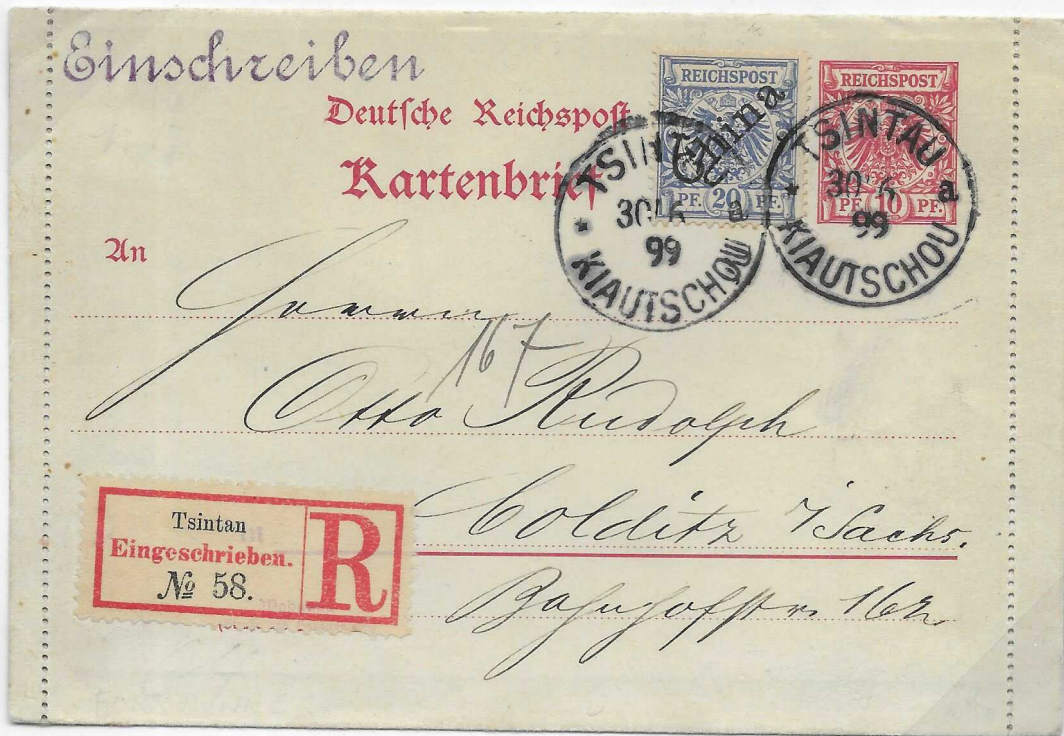 Einschreiben
Deutsche Reichspost
Kartenbrief
REICHSPOST
China
PF. 20 PF.
REICHSPOST
PF. 10 PF.
TSINTAU
30 6 a
99
KIAUTSCHOU
TSINTAU
30 6 a
99
KIAUTSCHOU
An
Herrn
167
Otto Rudolph
Colditz i/Sachs.
Bahnhofstr.
Tsintan
Eingeschrieben.
№ 58.
R